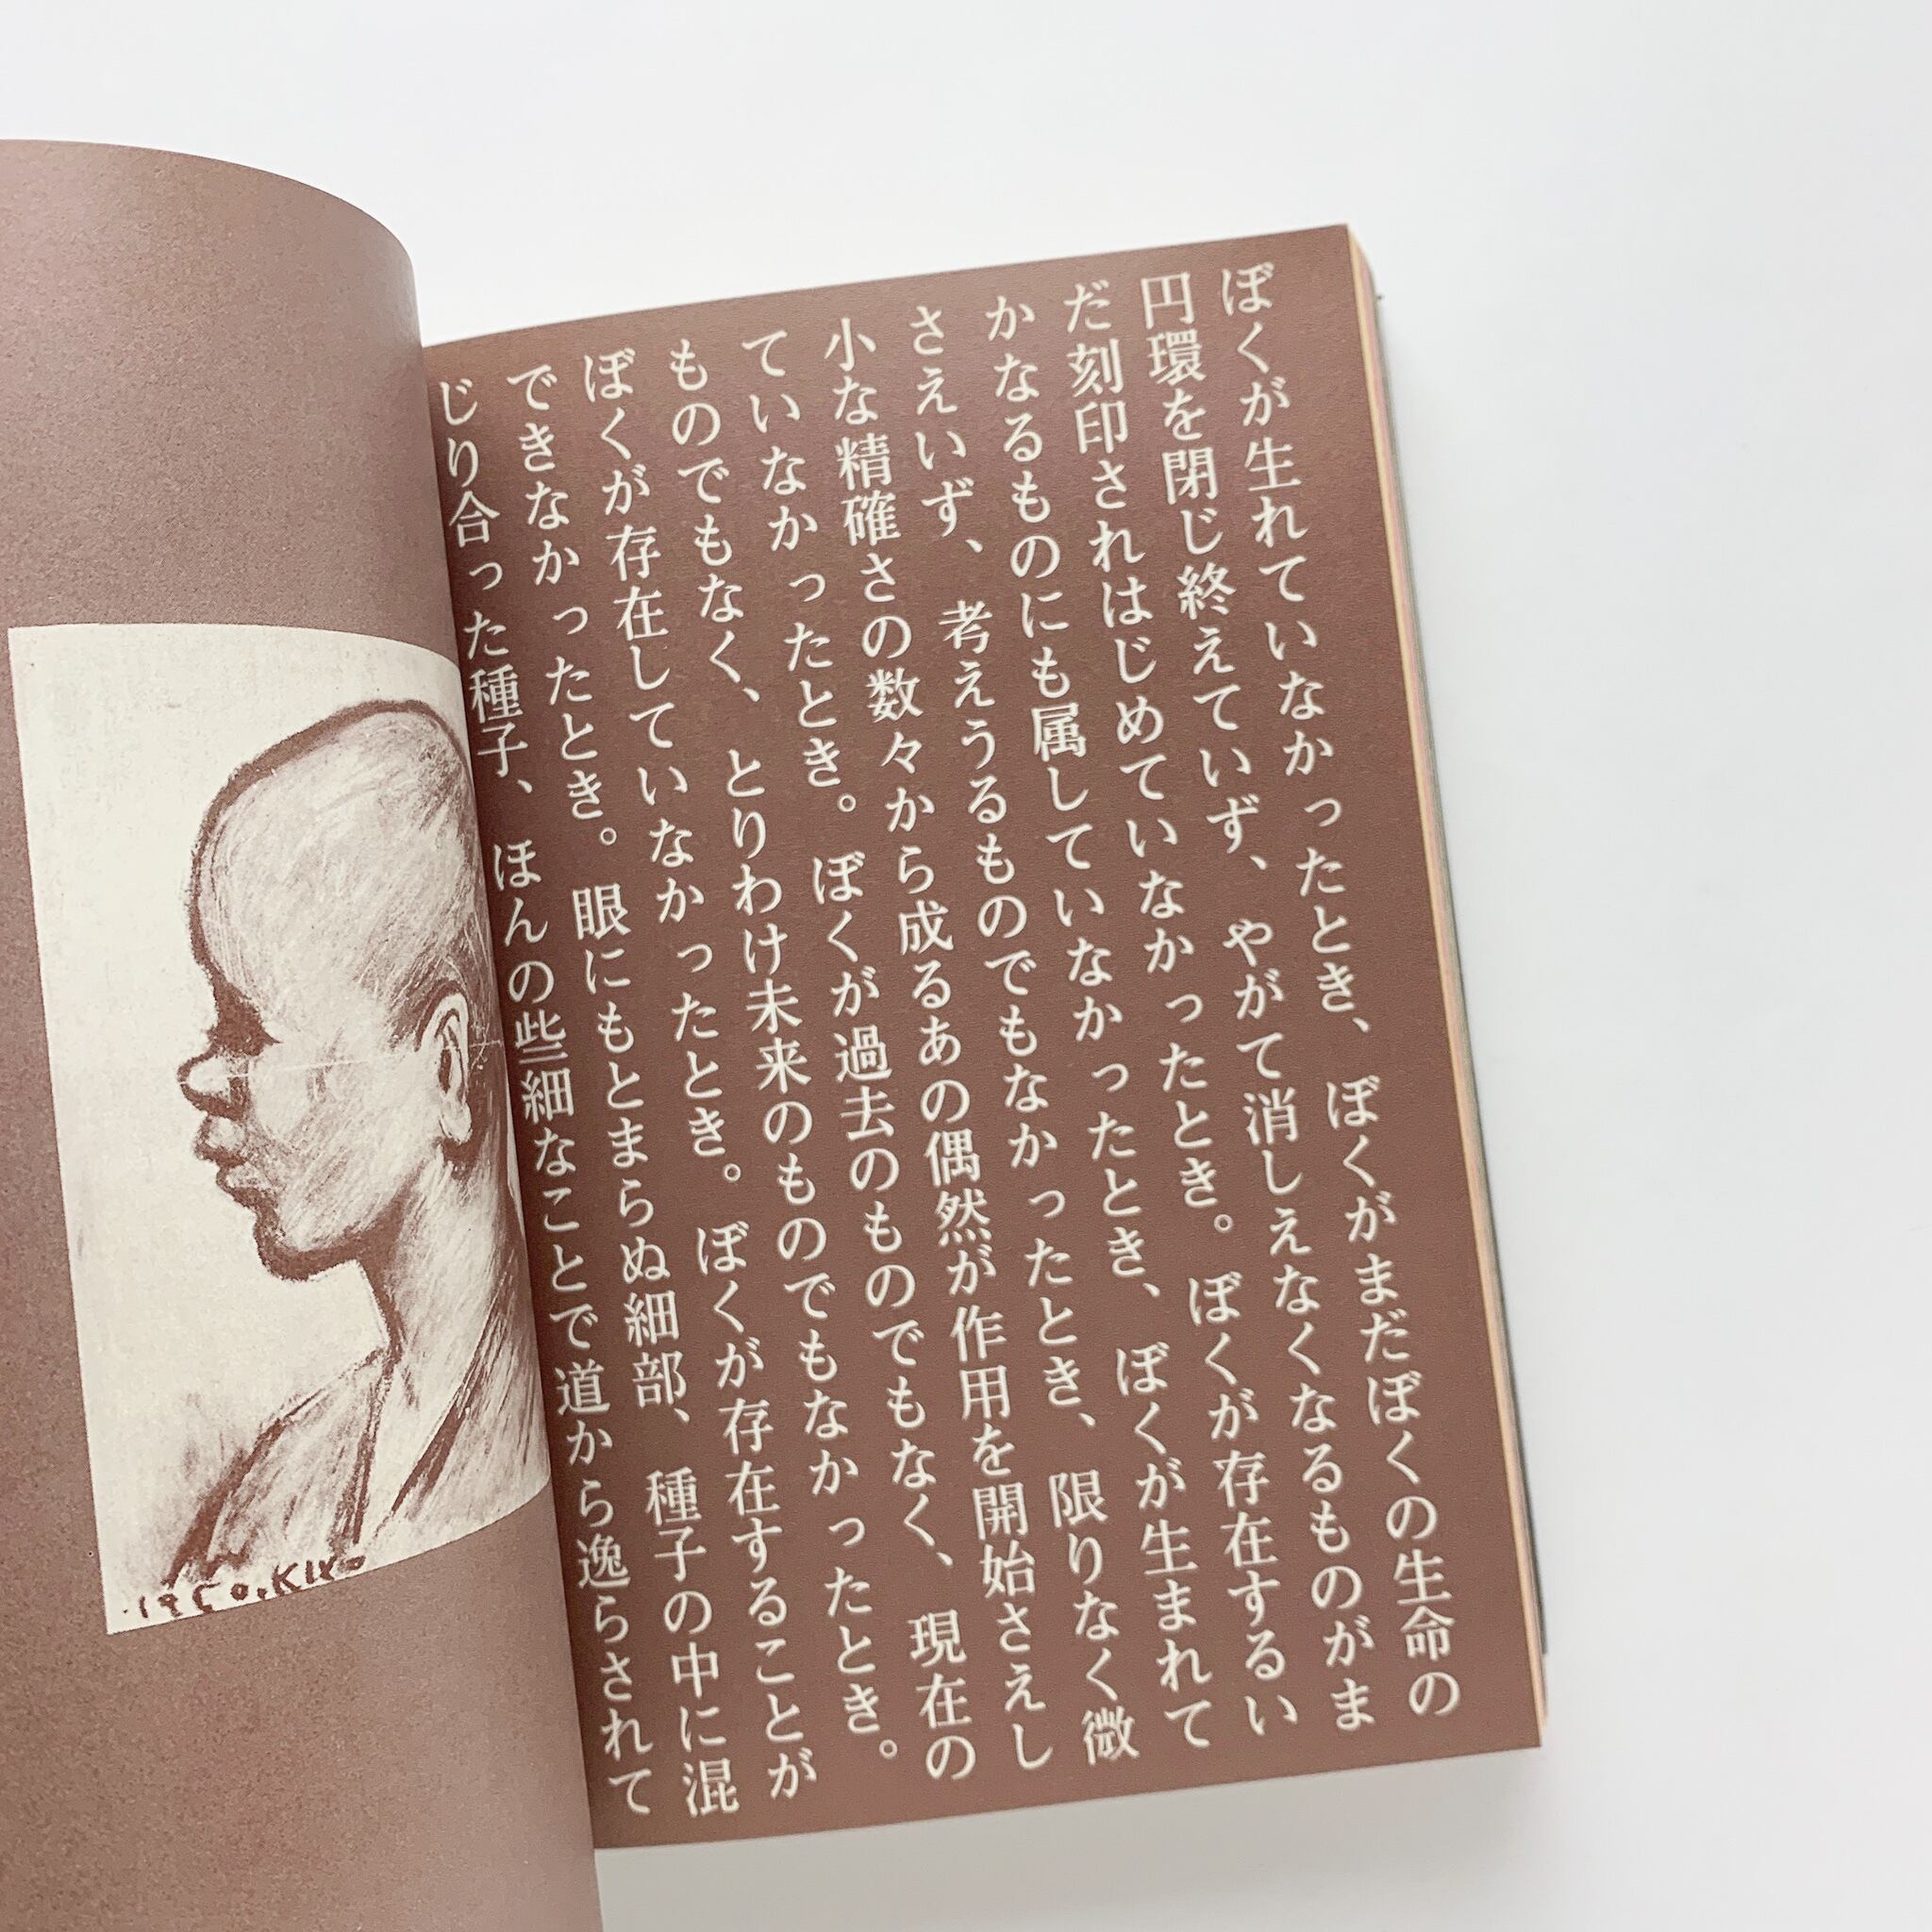 ぼくが生れていなかったとき、ぼくがまだぼくの生命の
円環を閉じ終えていず、やがて消しえなくなるものがま
だ刻印されはじめていなかったとき。ぼくが存在するい
かなるものにも属していなかったとき、ぼくが生まれて
さえいず、考えうるものでもなかったとき、限りなく微
小な精確さの数々から成るあの偶然が作用を開始さえし
ていなかったとき。ぼくが過去のものでもなく、現在の
ものでもなく、とりわけ未来のものでもなかったとき。
ぼくが存在していなかったとき。ぼくが存在することが
できなかったとき。眼にもとまらぬ細部、種子の中に混
じり合った種子、ほんの些細なことで道から逸らされて